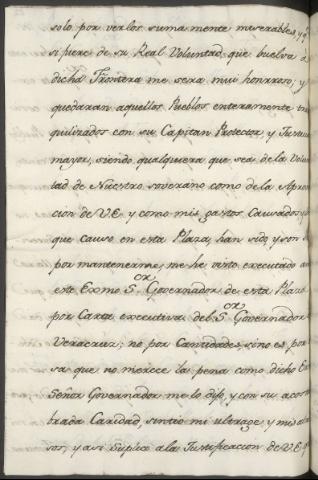 solo por verlos suma mente miserables, y q.
si fuere de su Real Voluntad, que buelva à
dicha Frontera me sera mui honrroso; y
quedaran aquellos Pueblos enteramente tra
quilizados con su Capitan Protector y Justicia
mayor, siendo qualquiera que sea de la Volun
tad de Nuestro soverano como de la Aprova
cion de V.E y como mis gastos Causados, y
que causo en esta Plaza, han sido, y son
por mantenerme, me he visto executado
este Exmo S.or Governador de esta Plaza
por Carta executiva del S.or Governador
Veracruz; no por Cantidades, sino es por
sa que no merece la pena como dicho Exmo
Señor Governador me lo dijo, y con su acos
brada Caridad, sintio mi ultrage, y mis
sos, y asi Suplico a la Justificacion de V.E